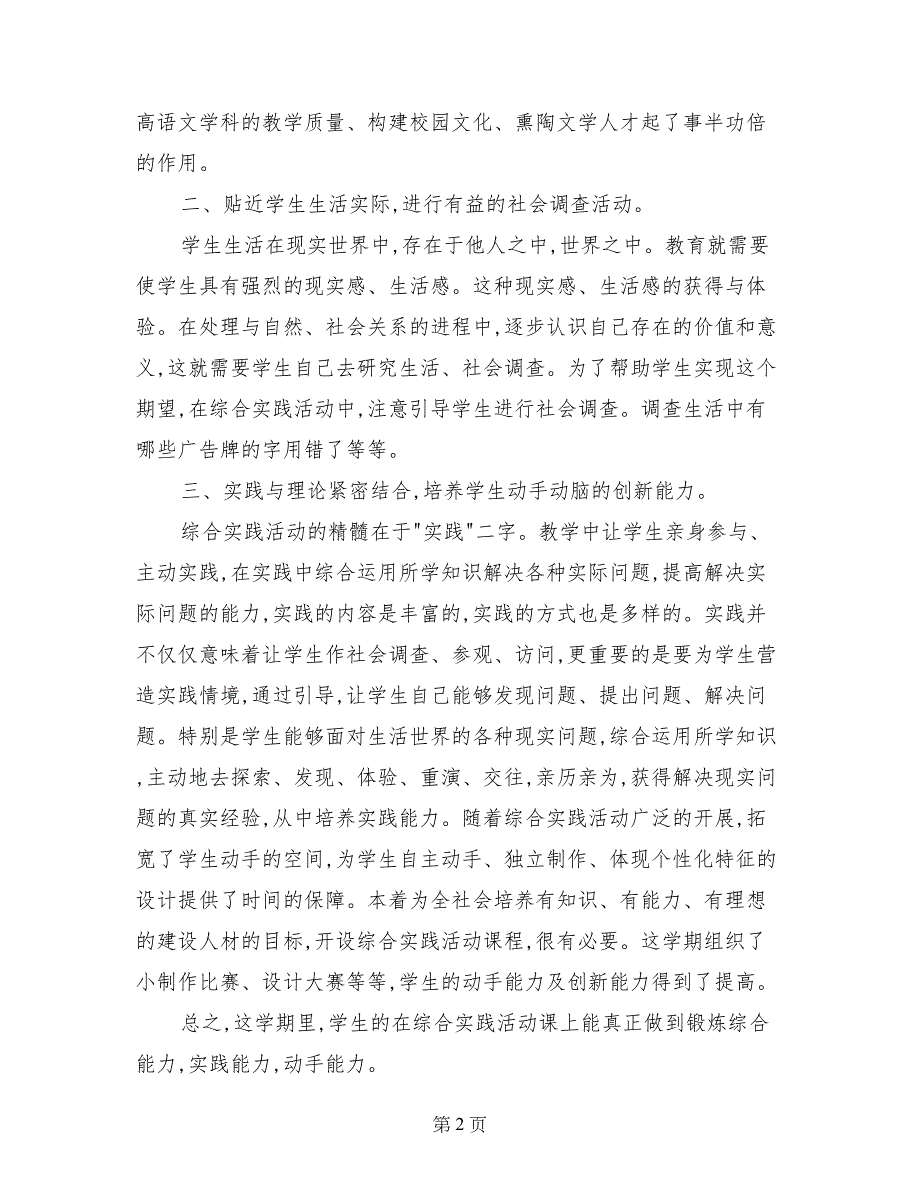 高语文学科的教学质量、构建校园文化、熏陶文学人才起了事半功倍
的作用。
二、贴近学生生活实际,进行有益的社会调查活动。
学生生活在现实世界中,存在于他人之中,世界之中。教育就需要
使学生具有强烈的现实感、生活感。这种现实感、生活感的获得与体
验。在处理与自然、社会关系的进程中,逐步认识自己存在的价值和意
义,这就需要学生自己去研究生活、社会调查。为了帮助学生实现这个
期望,在综合实践活动中,注意引导学生进行社会调查。调查生活中有
哪些广告牌的字用错了等等。
三、实践与理论紧密结合,培养学生动手动脑的创新能力。
综合实践活动的精髓在于"实践"二字。教学中让学生亲身参与、
主动实践,在实践中综合运用所学知识解决各种实际问题,提高解决实
际问题的能力,实践的内容是丰富的,实践的方式也是多样的。实践并
不仅仅意味着让学生作社会调查、参观、访问,更重要的是要为学生营
造实践情境,通过引导,让学生自己能够发现问题、提出问题、解决问
题。特别是学生能够面对生活世界的各种现实问题,综合运用所学知识
,主动地去探索、发现、体验、重演、交往,亲历亲为,获得解决现实问
题的真实经验,从中培养实践能力。随着综合实践活动广泛的开展,拓
宽了学生动手的空间,为学生自主动手、独立制作、体现个性化特征的
设计提供了时间的保障。本着为全社会培养有知识、有能力、有理想
的建设人材的目标,开设综合实践活动课程,很有必要。这学期组织了
小制作比赛、设计大赛等等,学生的动手能力及创新能力得到了提高。
总之,这学期里,学生的在综合实践活动课上能真正做到锻炼综合
能力,实践能力,动手能力。
第 2 页